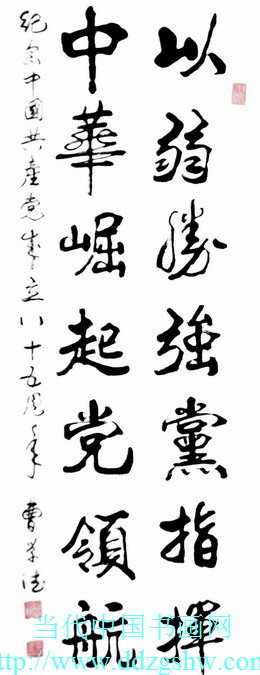 以弱勝強黨指揮
中華崛起党領航
纪念中國共產党成立八十五周年 曹学德
当代中国书画网
http://www.ddzgshw.com